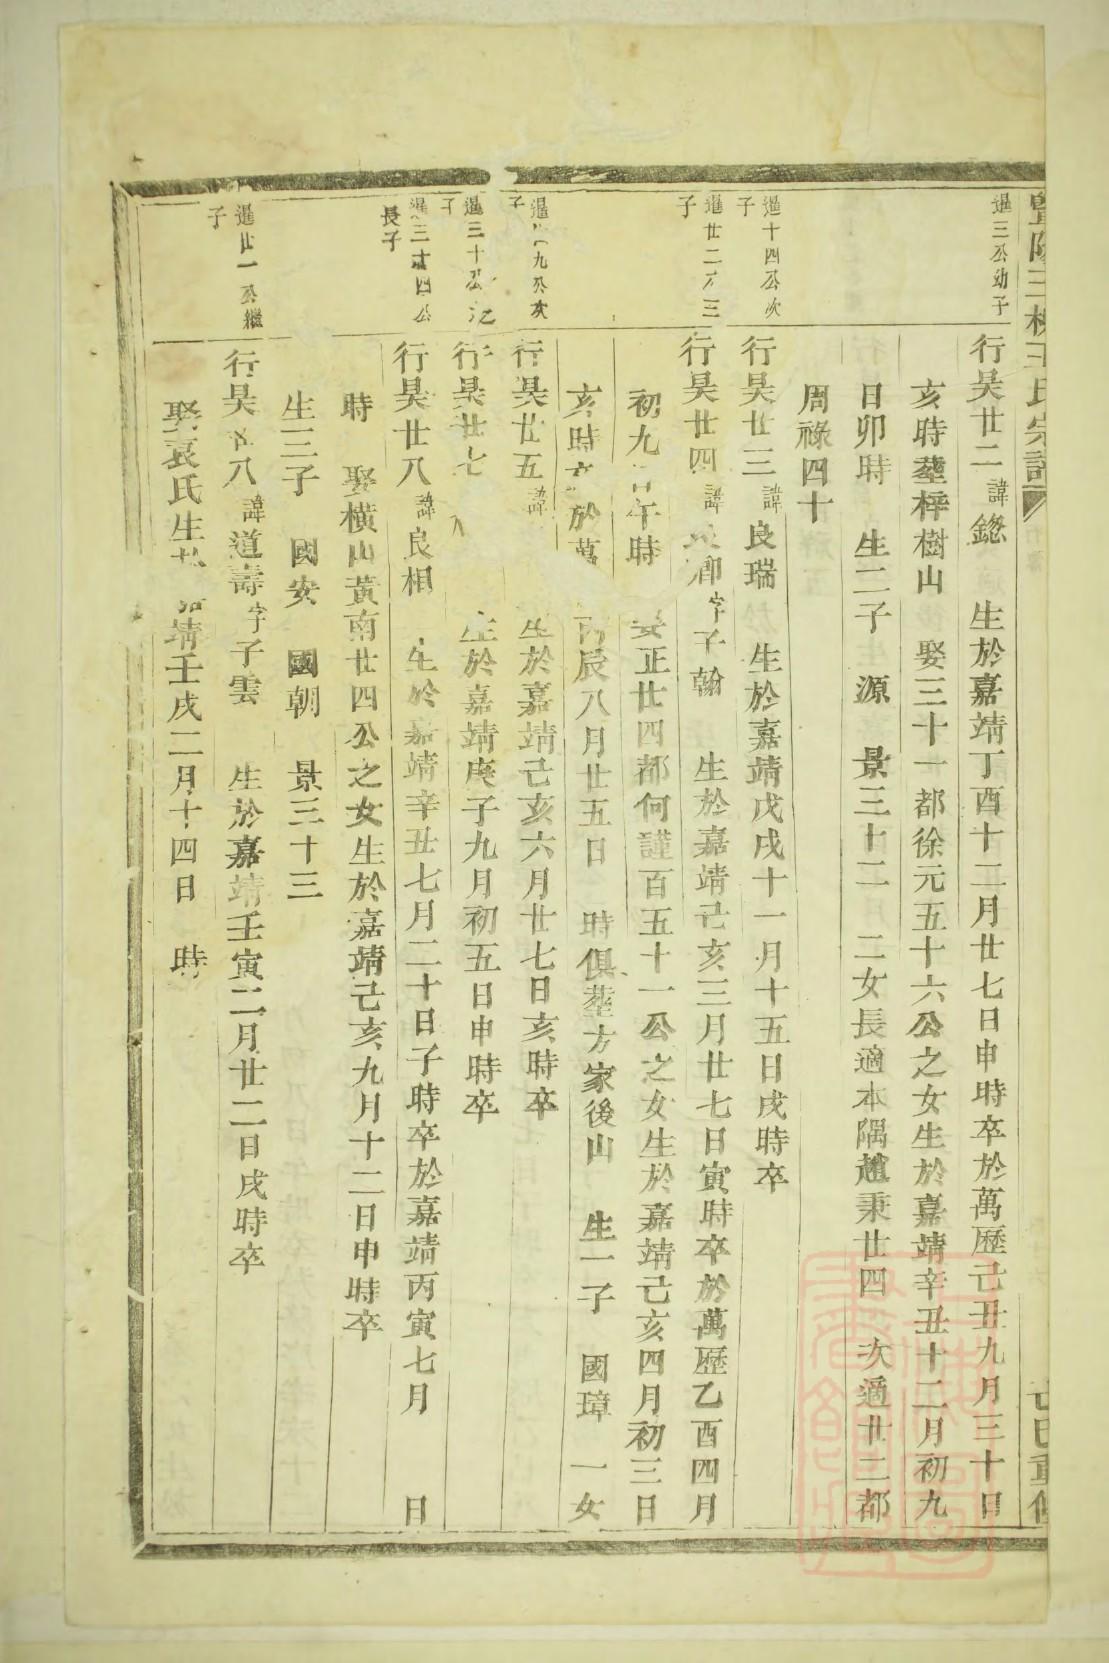 暨陽三
氏宗譜
暹三公幼子
行昊廿二 諱鎴 生於嘉靖丁酉十二月廿七日申時卒於萬歷己丑九月三十日
亥時塟梓樹山 娶三十一都徐元五十六公之女生於嘉靖辛丑十二月初九
日卯時 生二子 源 景三十二 二女長適本隅趙秉廿四 次適廿二都
周祿四十
暹十四公次子
行昊廿三 諱良瑞 生於嘉靖戊戌十一月十五日戌時卒
暹廿二 三子
行昊廿四 諱 卿字子翰 生於嘉靖己亥三月廿七日寅時卒於萬歷乙酉四月
初九日午時 娶正廿四都何謹百五十一公之女生於嘉靖己亥四月初三日
亥時 於萬 丙辰八月廿五日 時俱塟方家後山 生一子 國璋 一女
暹 九公次子
行昊廿五 諱 生於嘉靖己亥六月廿七日亥時卒
暹三十公 子
行昊廿七 生於嘉靖庚子九月初五日申時卒
暹三十四公長子
行昊廿八 諱良相 生於嘉靖辛丑七月二十日子時卒於嘉靖丙寅七月 日
時 娶橫山黃南廿四公之女生於嘉靖己亥九月十二日申時卒
生三子 國安 國朝 景三十三
暹廿一公繼子
行昊 八 諱道壽字子雲 生於嘉靖壬寅二月廿二日戌時卒
娶袁氏生於嘉靖壬戌二月十四日 時